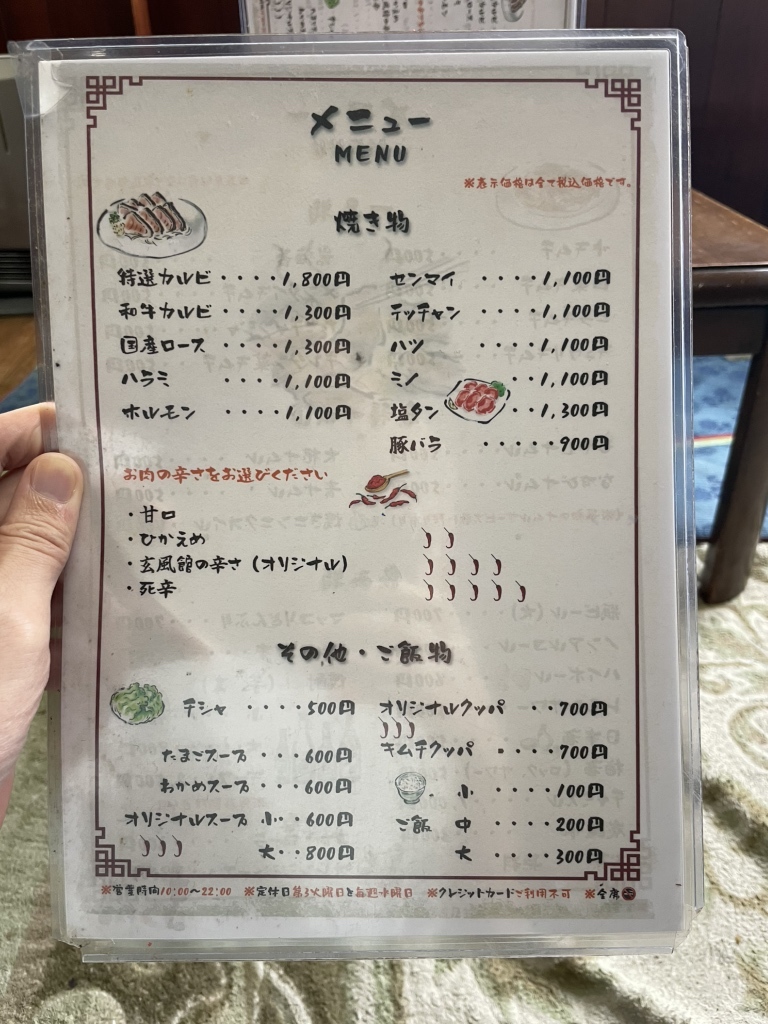 メニュー
MENU
※表示価格は全て税込価格です。
焼き物
特選カルビ････1,800円
和牛カルビ････1,300円
国産ロース････1,300円
ハラミ････1,100円
ホルモン････1,100円
センマイ････1,100円
テッチャン････1,100円
ハツ････1,100円
ミノ･･1,100円
塩タン･･1,300円
豚バラ･････900円
お肉の辛さをお選びください
・甘口
・ひかえめ
・玄風館の辛さ（オリジナル）
・死辛
その他・ご飯物
チシャ････500円
たまごスープ･･･600円
わかめスープ･･･600円
オリジナルスープ 小･･600円
大･･800円
オリジナルクッパ･･700円
キムチクッパ････700円
小････100円
ご飯 中････200円
大････300円
※営業時間10:00～22:00 ※定休日第3火曜日と毎週水曜日 ※クレジットカードご利用不可 ※全席